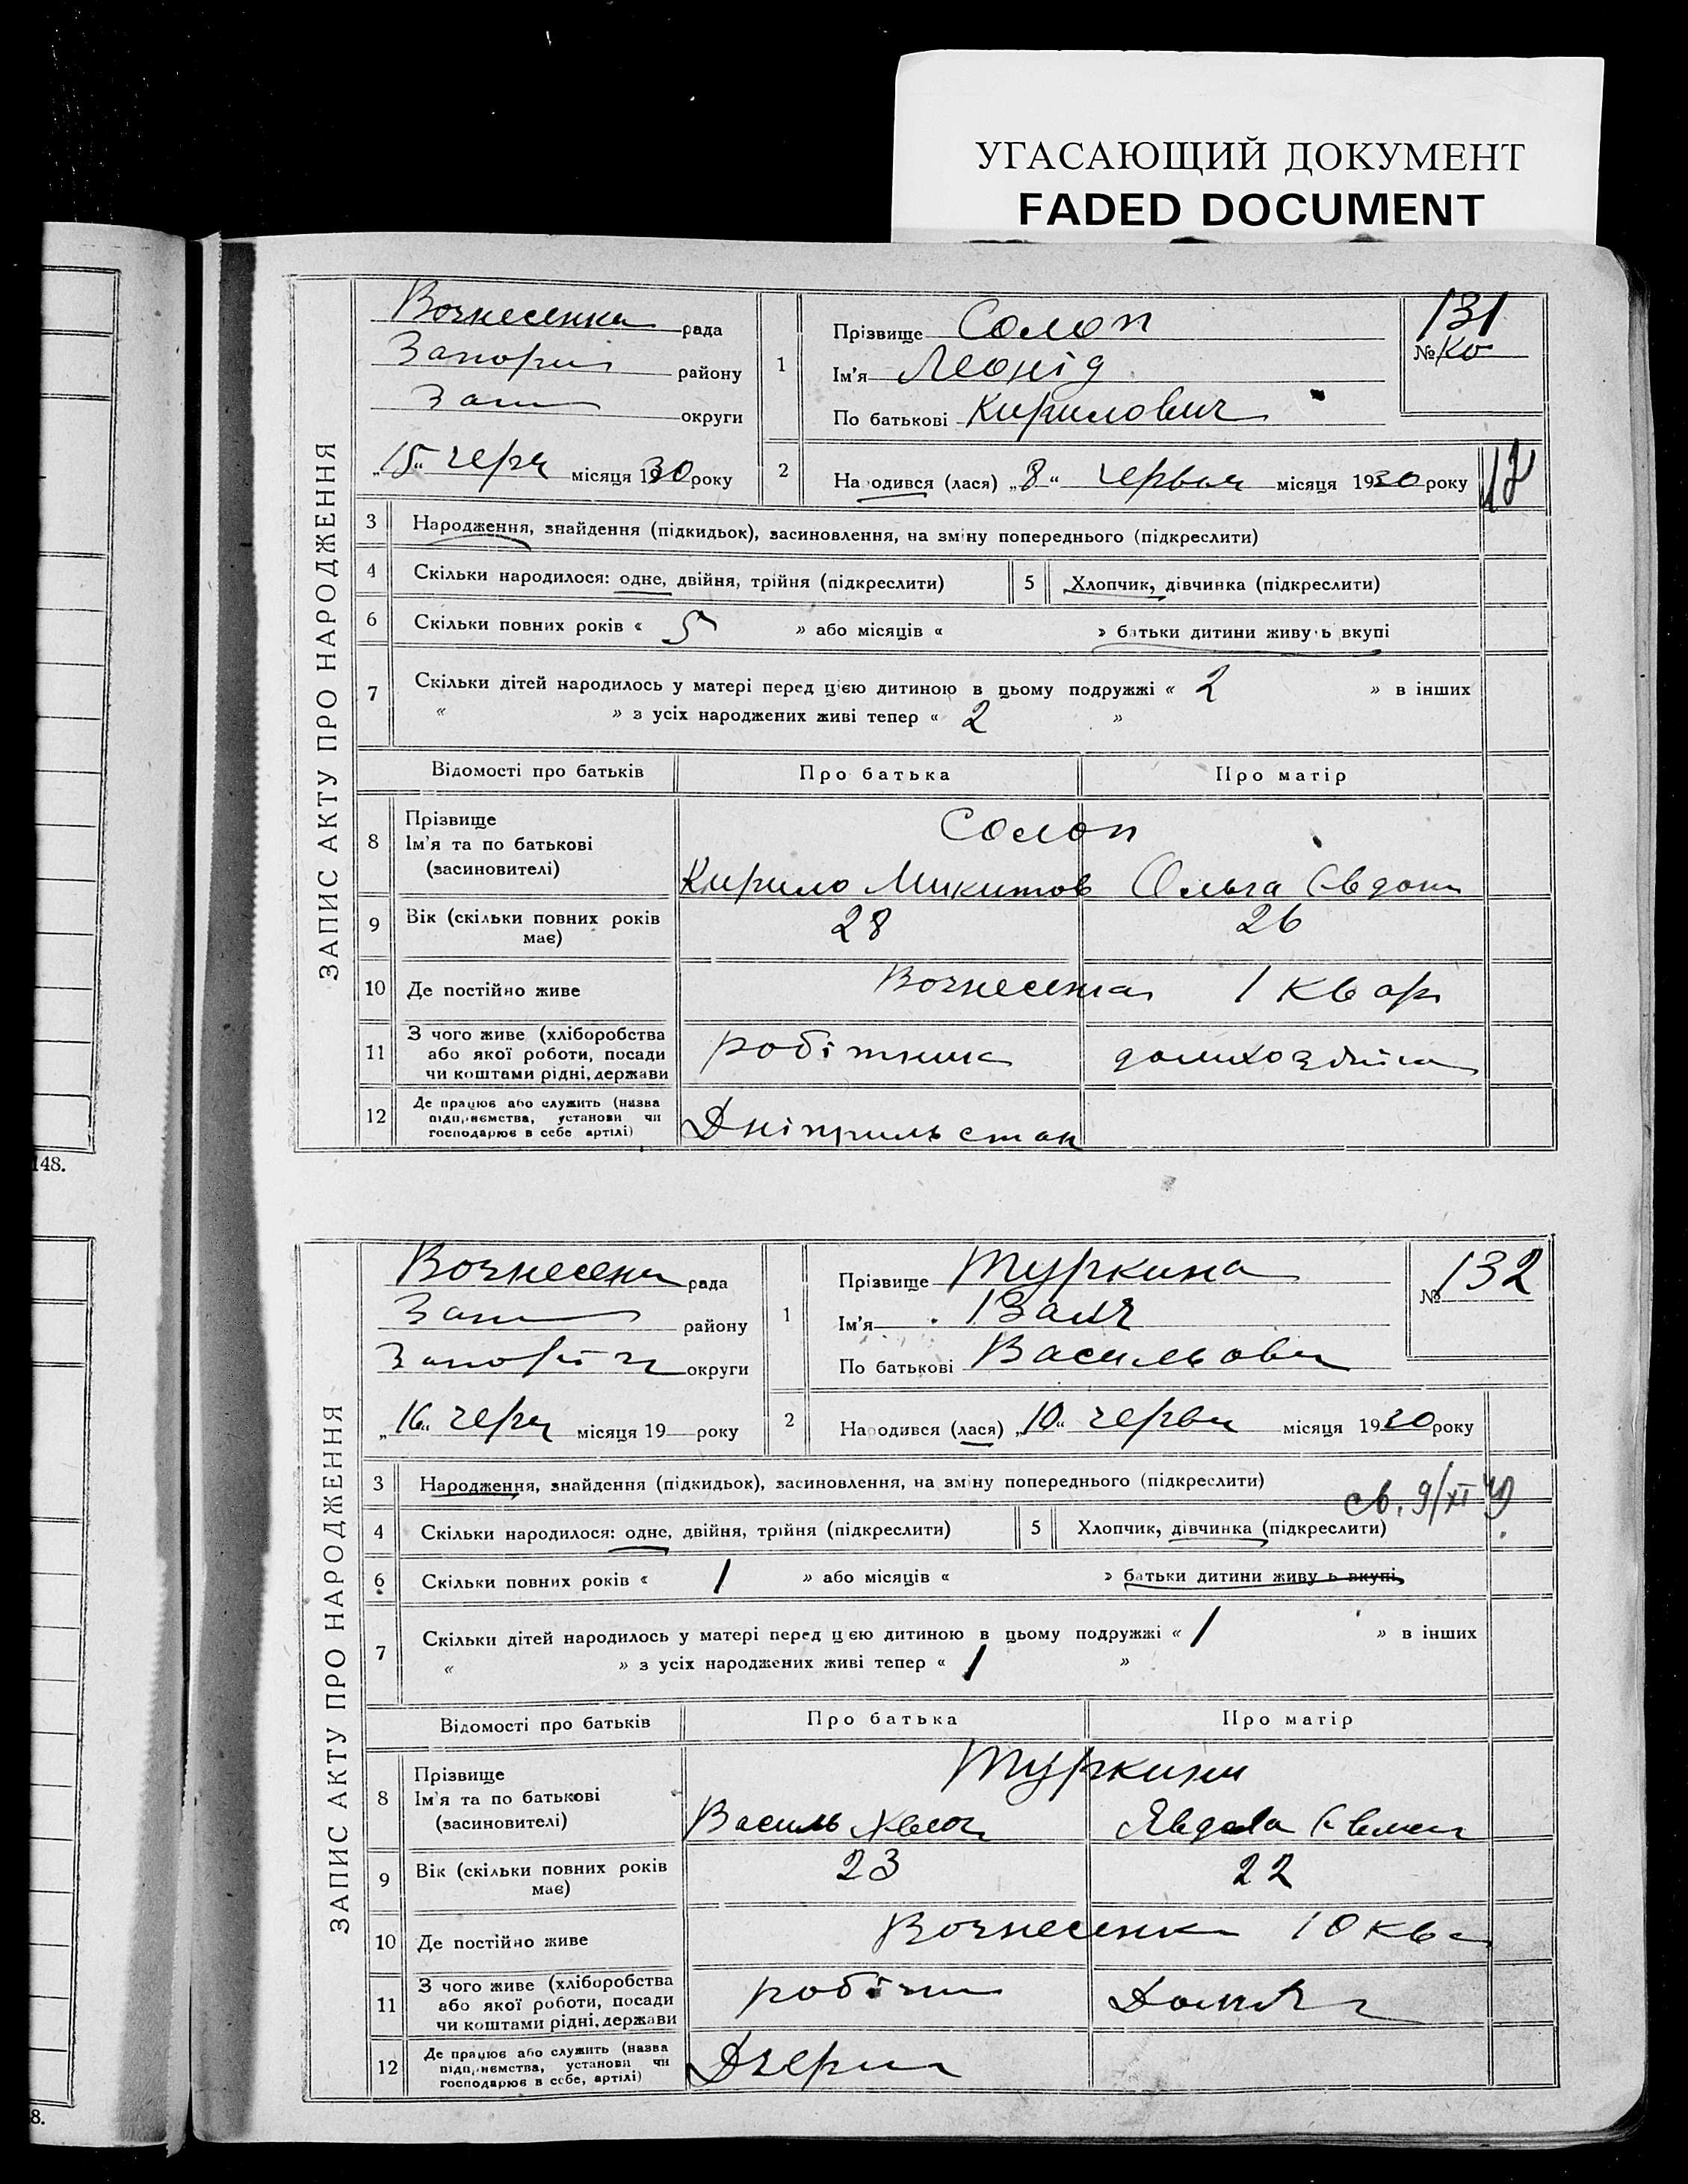 УГАСАЮЩИЙ ДОКУМЕНТ
FADED DOCUMENT
148.
8.
ЗАПИС АКТУ ПРО НАРОДЖЕННЯ
Вознесенка рада
району
округи
„15“ черв місяця 1930 року
1
Прізвище Солоп
Ім'я Леонід
По батькові Кирилович
131
№
2 На одився (лася) „8“ червня місяця 1930 року
3 Народження, знайдення (підкидьок), засиновлення, на зміну попереднього (підкреслити)
4 Скільки народилося: одне, двійня, трійня (підкреслити) 5 Хлопчик, дівчинка (підкреслити)
6 Скільки повних років « 5 » або місяців « » батьки дитини живу ь вкупі
7 Скільки дітей народилось у матері перед цією дитиною в цьому подружжі « 2 » в інших
« » з усіх народжених живі тепер « 2 »
Відомості про батьків Про батька Про матір
8 Прізвище
Ім'я та по батькові
(засиновителі)
Солоп
Кирило Микитов Ольга Євдок
9 Вік (скільки повних років має) 28 26
10 Де постійно живе Вознесенка 1 квар
11 З чого живе (хліборобства
або якої роботи, посади
чи коштами рідні, держави
робітник
12 Де працює або служить (назва
підприємства, установи чи
господарює в себе артілі)
ЗАПИС АКТУ ПРО НАРОДЖЕННЯ
Вознесенк рада
району
округи
„16“ черв місяця 19 року
1
Прізвище Туркина
Ім'я Валя
По батькові Васильовн
№ 132
2 Народився (лася) „10“ червн місяця 1930 року
3 Народження, знайдення (підкидьок), засиновлення, на зміну попереднього (підкреслити)
св. 9/XI
4 Скільки народилося: одне, двійня, трійня (підкреслити) 5 Хлопчик, дівчинка (підкреслити)
6 Скільки повних років « 1 » або місяців « » батьки дитини живу ь вкупі
7 Скільки дітей народилось у матері перед цією дитиною в цьому подружжі « 1 » в інших
« » з усіх народжених живі тепер « 1 »
Відомості про батьків Про батька Про матір
8 Прізвище
Ім'я та по батькові
(засиновителі)
Туркини
Василь
9 Вік (скільки повних років має) 23 22
10 Де постійно живе Вознесенк 10 кв
11 З чого живе (хліборобства
або якої роботи, посади
чи коштами рідні, держави
робітн
12 Де працює або служить (назва
підприємства, установи чи
господарює в себе, артілі)